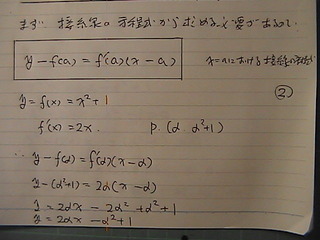 まず 接線の方程式から求める必要がある。
y - f(a) = f'(a)(x - a) x=aにおける接線の方程式
②
y = f(x) = x² + 1
f'(x) = 2x. P. (α. α²+1)
∴ y - f(α) = f'(α)(x - α)
y - (α²+1) = 2α(x - α)
y = 2αx - 2α² + α² + 1
y = 2αx - α² + 1